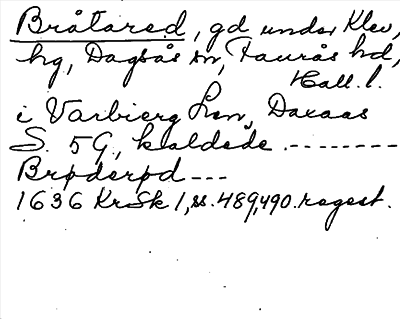 Bråtared, gd under Klev,
hg, Dagsås sn, Faurås hd,
Hall. l.
i Varbierg Len, Daxaas
S. 59, kaldede --------
Brøderød ---
1636 KrSk 1, ss. 489, 490. regest.